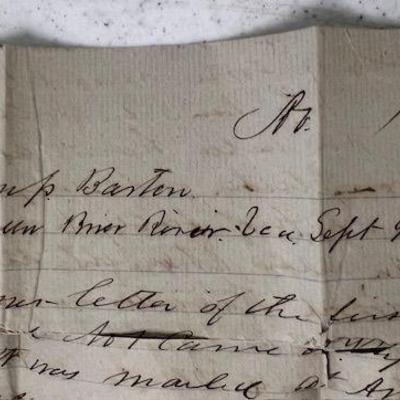 No.
mp Barton.
een Brier River. Va. Sept 9
our letter of the firs
not came
it was mailed at